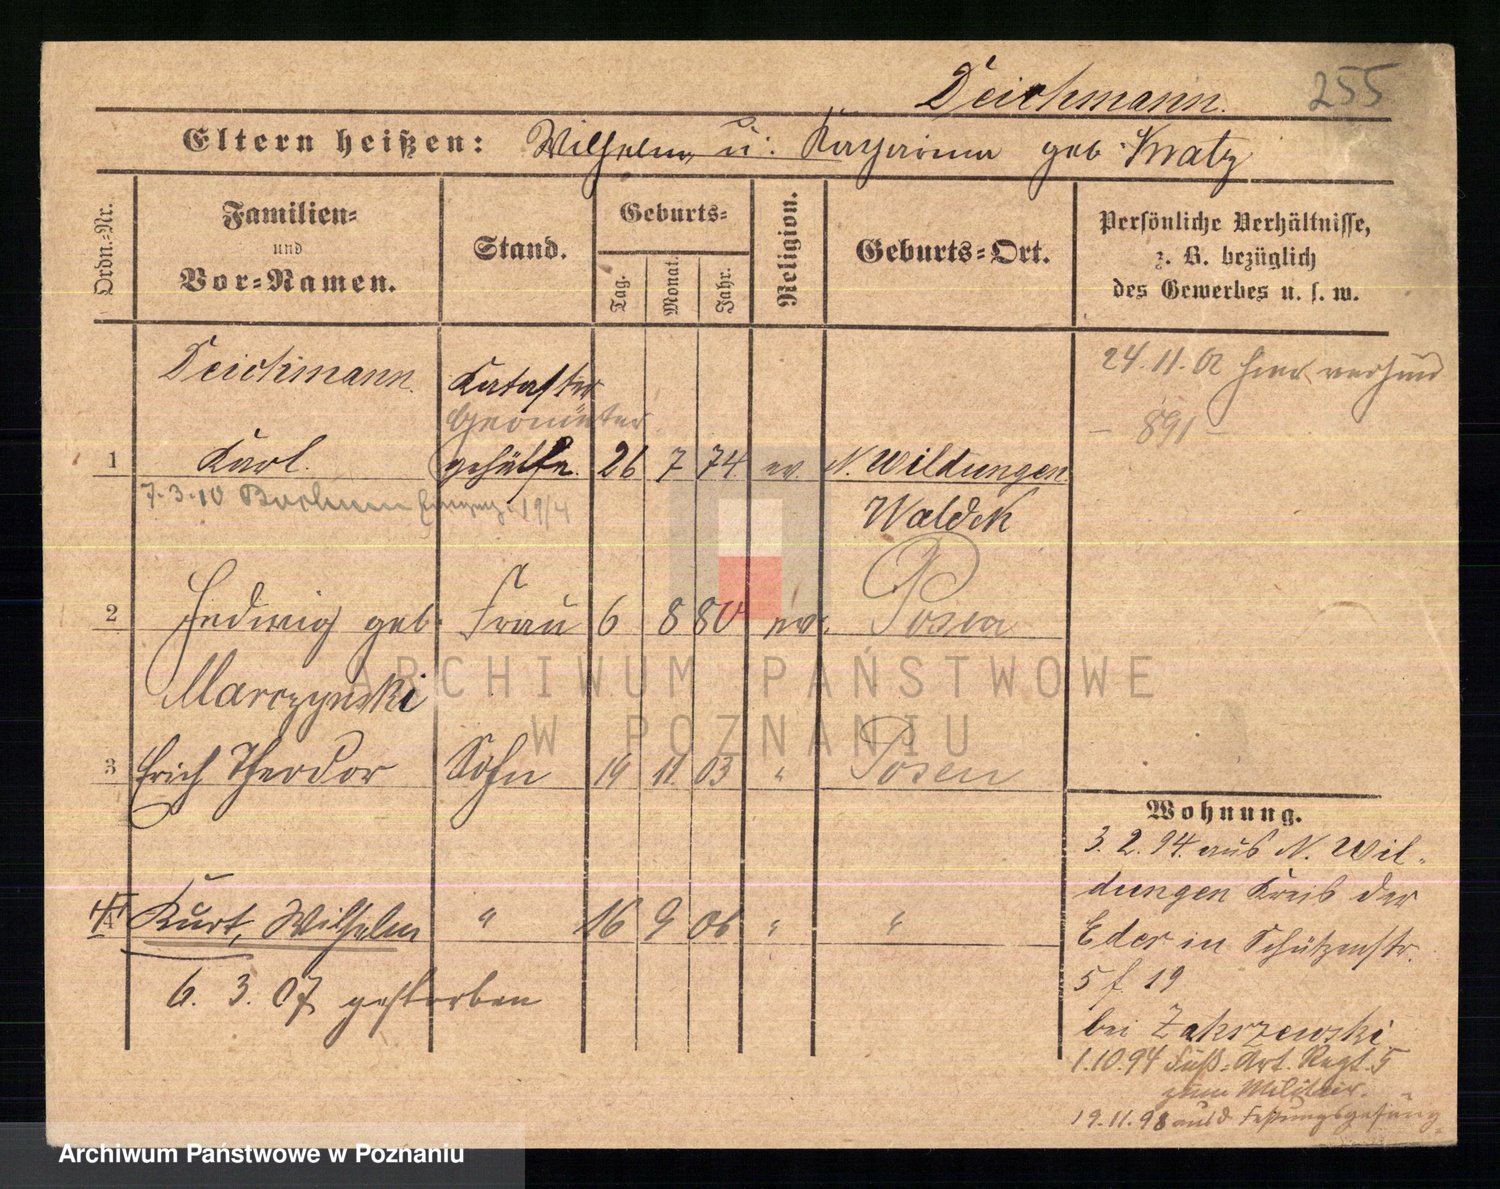 Deichmann.
255
Eltern heißen: Wilhelm u. Katharina geb. Kratz
Ordn.-Nr.
Familien-
und
Vor-Namen.
Stand.
Geburts-
Tag.
Monat.
Jahr.
Religion.
Geburts-Ort.
Persönliche Verhältnisse,
z. B. bezüglich
des Gewerbes u. s. w.
Deichmann
Kataster
Geometer
1 Karl. gehülfe. 26 7 74 ev. N. Wildungen
7.3.10 Bochum 19/4
Waldek
24.11.02 hier
- 891 -
2 Hedwig geb. Frau 6 8 80 ev. Posen
Marczynski
3 Erich Theodor Sohn 19 11 03 " Posen
4 Kurt, Wilhelm " 16 9 06 " "
6. 3. 07 gestorben
Wohnung.
3. 2. 94. aus N. Wil-
dungen Kreis der
Eder in Schützenstr.
5 f 19
bei Zakrzewski
1.10.94 Fuß-Art. Regt. 5
zum Militair.
19.11.98 aus d. Festungsgefäng.
ARCHIWUM PAŃSTWOWE
W POZNANIU
Archiwum Państwowe w Poznaniu